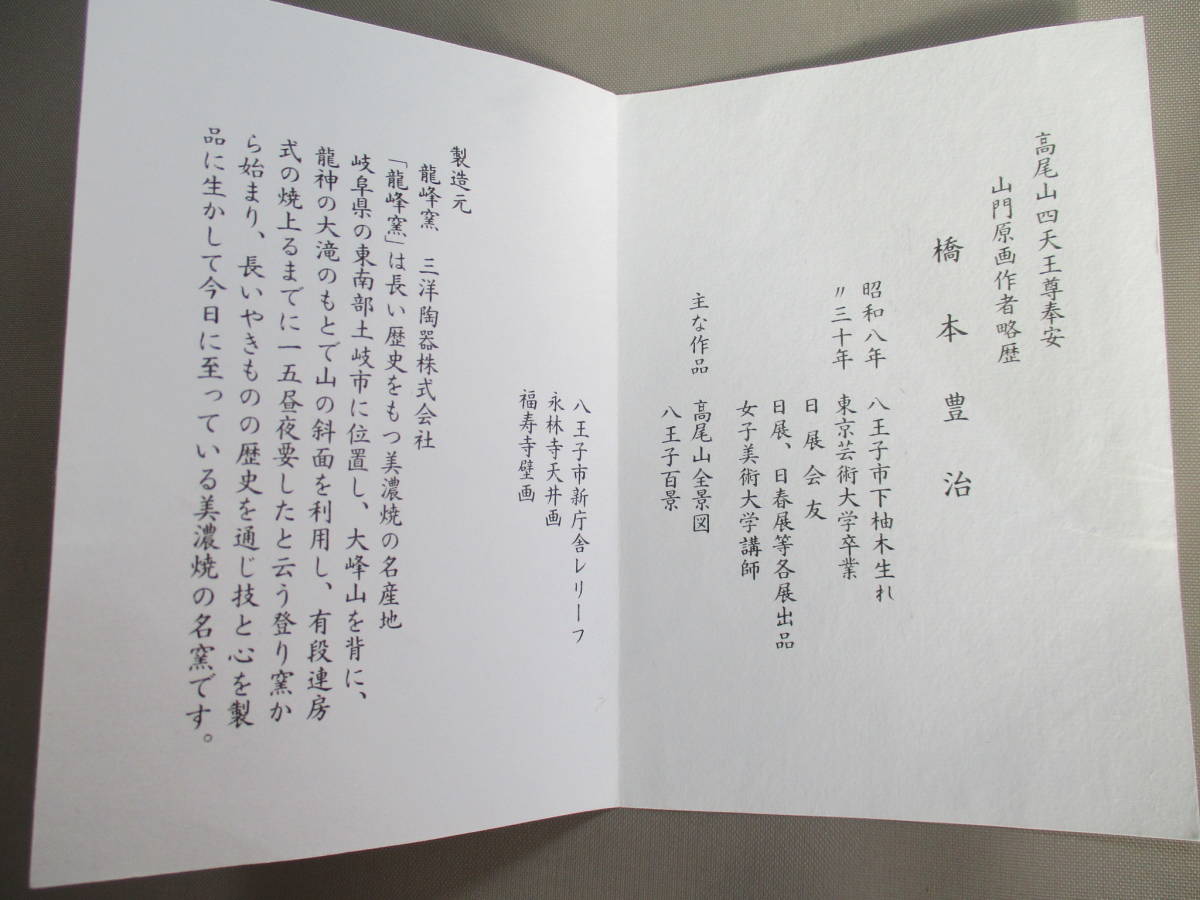 高尾山四天王尊奉安
山門原画作者略歴
橋本豊治
昭和八年　八王子市下柚木生れ
〃三十年　東京芸術大学卒業
日展会友
日展、日春展等各展出品
女子美術大学講師
主な作品　高尾山全景図
八王子百景
八王子市新庁舎レリーフ
永林寺天井画
福寿寺壁画
製造元
龍峰窯　三洋陶器株式会社
「龍峰窯」は長い歴史をもつ美濃焼の名産地
岐阜県の東南部土岐市に位置し、大峰山を背に、
龍神の大滝のもとで山の斜面を利用し、有段連房
式の焼上るまでに一五昼夜要したと云う登り窯か
ら始まり、長いやきものの歴史を通じ技と心を製
品に生かして今日に至っている美濃焼の名窯です。